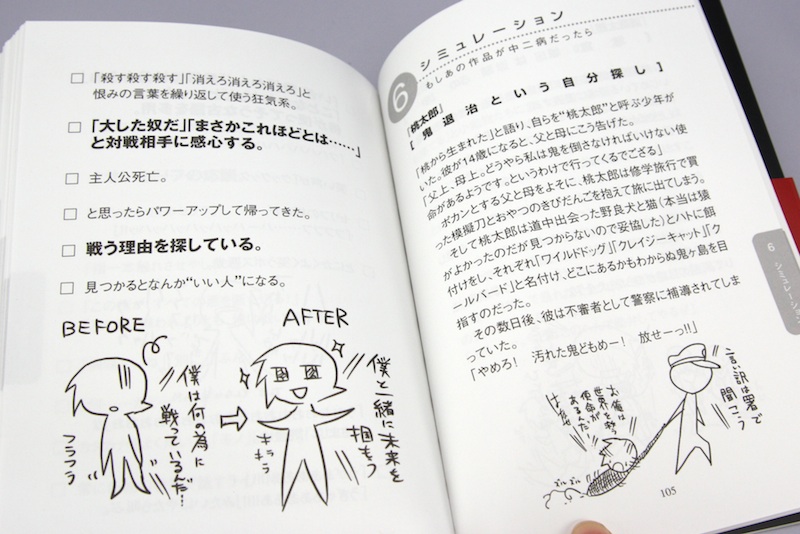 □ 「殺す殺す殺す」「消えろ消えろ消えろ」と
恨みの言葉を繰り返して使う狂気系。
□ 「大した奴だ」「まさかこれほどとは……」
と対戦相手に感心する。
□ 主人公死亡。
□ と思ったらパワーアップして帰ってきた。
□ 戦う理由を探している。
□ 見つかるとなんか“いい人”になる。
BEFORE
AFTER
僕は何の為に
戦っているんだ…
フラフラ
僕と一緒に未来を
掴もう
キラキラ
6
シミュレーション
もしあの作品が中二病だったら
『桃太郎』
[鬼退治という自分探し]
「桃から生まれた」と語り、自らを“桃太郎”と呼ぶ少年が
いた。彼が14歳になると、父と母にこう告げた。
「父上、母上。どうやら私は鬼を倒さなければいけない使
命があるようです。というわけで行ってくるでござる」
ポカンとする父と母をよそに、桃太郎は修学旅行で買
った模擬刀とおやつのきびだんごを抱えて旅に出てしまう。
そして桃太郎は道中出会った野良犬と猫（本当は猿
がよかったのだが見つからないので妥協した）とハトに餌
付けをし、それぞれ「ワイルドドッグ」「クレイジーキャット」「ク
ールバード」と名付け、どこにあるかもわからぬ鬼ヶ島を目
指すのだった。
その数日後、彼は不審者として警察に補導されてしま
っていた。
「やめろ！ 汚れた鬼どもめー！ 放せーっ!!」
お俺は
世界を救う
使命が
あるんだ
はなせ
ズルズル
言い訳は署で
聞こう
105
6
シミュレーション